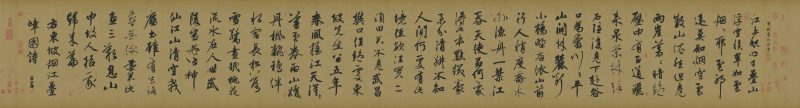 江上愁心千疊山
浮空積翠如雲
煙山耶雲耶
遠莫知煙空雲
散山依然但見
兩崖蒼蒼暗絕
谷中有百道飛
來泉縈林絡
石隱復見下赴谷
口為奔川川平
山開林麓斷
小橋野店依山前
行人稍度喬木
外漁舟一葉江
吞天使君何從
得此本點綴毫
末分清妍不知
人間何處有此
境徑欲往買二
頃田君不見武昌
樊口幽絕處東
坡先生留五年
春風搖江天漠
漠暮雲卷雨山娟
娟丹楓翻鴉伴
水宿長松落
雪驚醉眠桃花
流水在人世武
陵豈必皆神仙
江山清空我
塵土雖有去路
尋無緣還君此
畫三歎息山
中故人招我
歸來篇
右東坡烟江疊
嶂圖詩 子昂